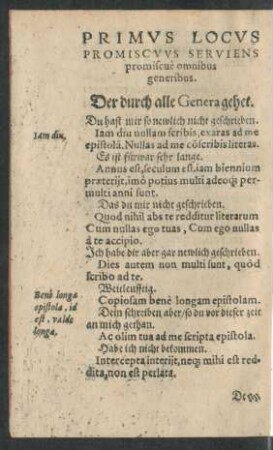 PRIMVS LOCVS
PROMISCVVS SERVIENS
promiscuè omnibus
generibus.
Der durch alle Genera gehet.
Du hast mir so newlich nicht geschrieben.
Iam diu.
Iam diu nullam scribis, exaras ad me
epistolã. Nullas ad me cõscribis literas.
Es ist fürwar sehr lange.
Annus est, seculum est, iam biennium
præterijt, imò potius multi adeoqꝫ per-
multi anni sunt.
Das du mir nicht geschrieben.
Quod nihil abs te redditur literarum
Cum nullas ego tuas, Cum ego nullas
á te accipio.
Ich habe dir aber gar newlich geschrieben.
Dies autem non multi sunt, quòd
scribo ad te.
Weitleufftig.
Benè longa
epistola, id
est, valde
longa.
Copiosam benè longam epistolam.
Dein schreiben aber/ so du vor dieser zeit
an mich gethan.
Ac olim tua ad me scripta epistola.
Habe ich nicht bekommen.
Intercepta interijt, neqꝫ mihi est red-
dita, non est perlata.